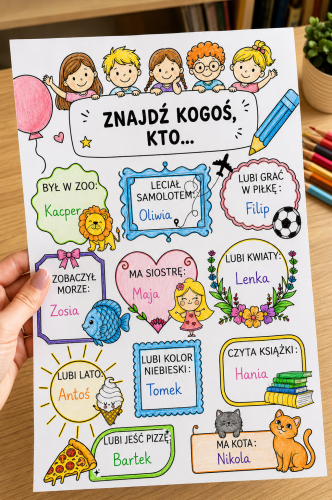 ZNAJDŹ KOGOŚ,
KTO...
BYŁ W ZOO:
Kacper
LECIAŁ
SAMOLOTEM:
Oliwia
LUBI GRAĆ
W PIŁKĘ:
Filip
ZOBACZYŁ
MORZE:
Zosia
MA SIOSTRĘ:
Maja
LUBI KWIATY:
Lenka
LUBI LATO:
Antoś
LUBI KOLOR
NIEBIESKI:
Tomek
CZYTA KSIĄŻKI:
Hania
LUBI JEŚĆ PIZZĘ:
Bartek
MA KOTA:
Nikola